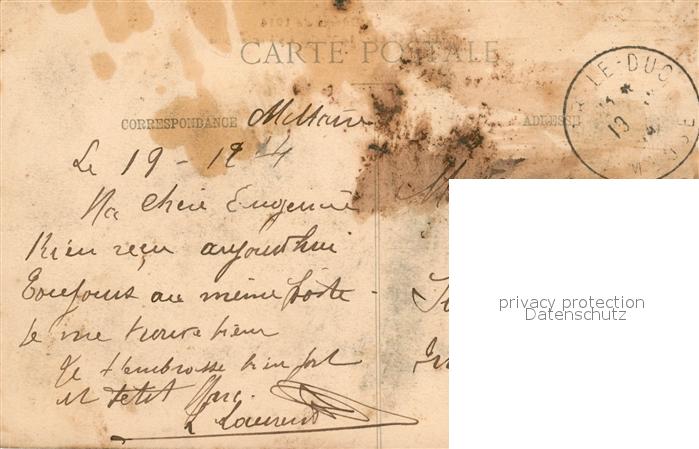 CARTE POSTALE
CORRESPONDANCE Militaire
ADRESSE
LE-DUC
Le 19 - 12 4
Ma chère Eugénie
Rien reçu aujourd'hui
Toujours au même poste
Je me trouve bien
Je t'embrasse bien fort
et petit Marc.
L Laurent
privacy protection
Datenschutz